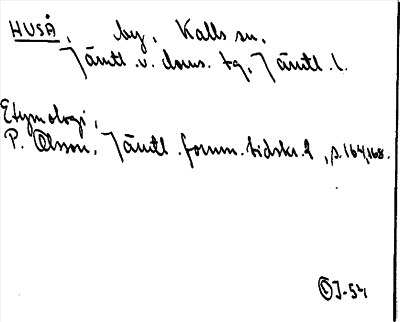 HUSÅ, by, Kalls sn,
Jämtl. v. doms. tg, Jämtl. l.
Etymologi,
P. Olsson, Jämtl. fornm. tidskr. 2, s. 164, 168.
J-54